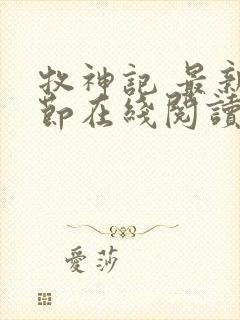 牧神記 最新
節在綫閱讀
愛莎